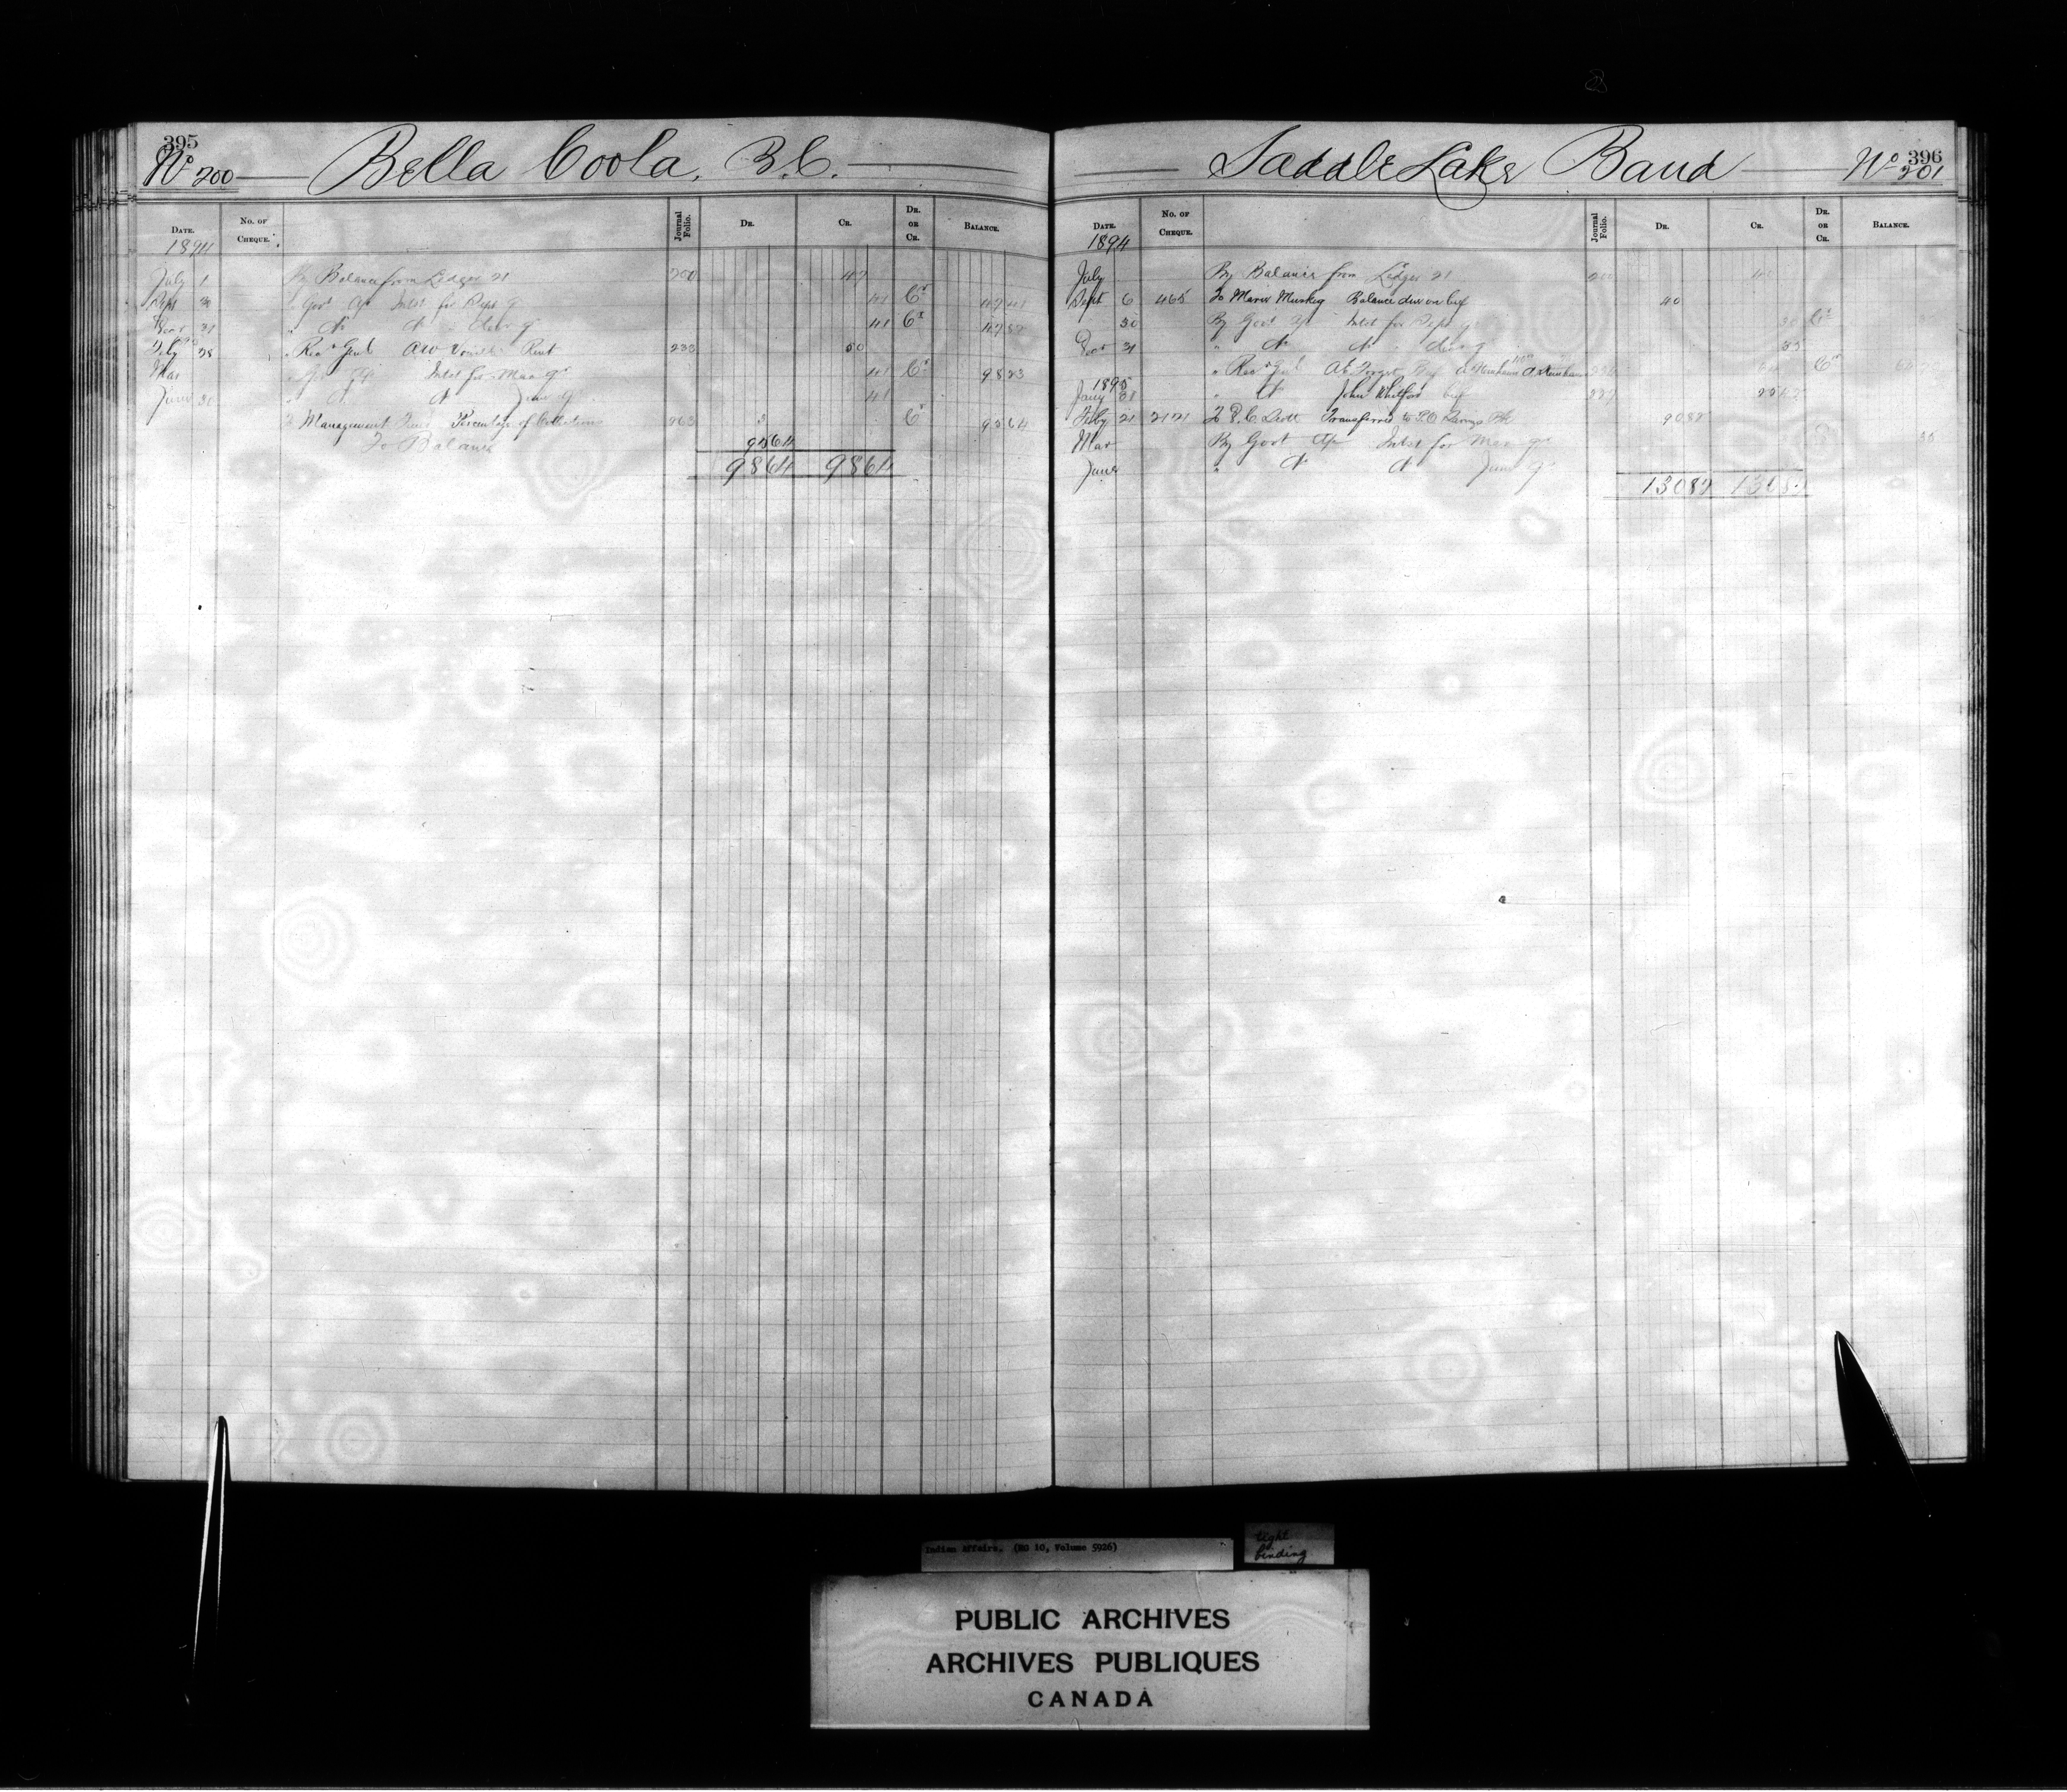 395
No 200 Bella Coola, B.C.
DATE. No. OF CHEQUE. Journal Folio. DR. CR. DR. OR CR. BALANCE.
1894
July 1 By Balance from Ledger 21 200 47
Sept 30 " Govt Intst for Sept qr 41 Cr 47 41
Decr 31 " do do " Decr qr 41 Cr 47 82
Feby 28 " Recr Genl AW Rent 233 50
Mar Intst for Mar qr 41 Cr 98 23
June 30 " do do June qr 41
To Management Fund Percentage of Collections 263 3 Cr 95 64
To Balance 95 64
98 64 98 64
396
Saddle Lake Band No 201
DATE. No. OF CHEQUE. Journal Folio. DR. CR. DR. OR CR. BALANCE.
1894
July By Balance from Ledger 21
Sept 6 465 To Marie Muskeg Balance due on beef 40
30 By Govt Intst for Sept qr Cr
Decr 31 " do do " Decr qr 35
" Recr Genl Forget Cr
1895
Jany 31 " do John Whitford beef 227
Feby 21 2121 To D.C. Scott Transferred to P.O. Savings Bk 90 82
Mar By Govt Intst for Mar qr 35
June " do do June qr
130 82 130 82
Indian Affairs. (RG 10, Volume 5926)
tight
binding
PUBLIC ARCHIVES
ARCHIVES PUBLIQUES
CANADA